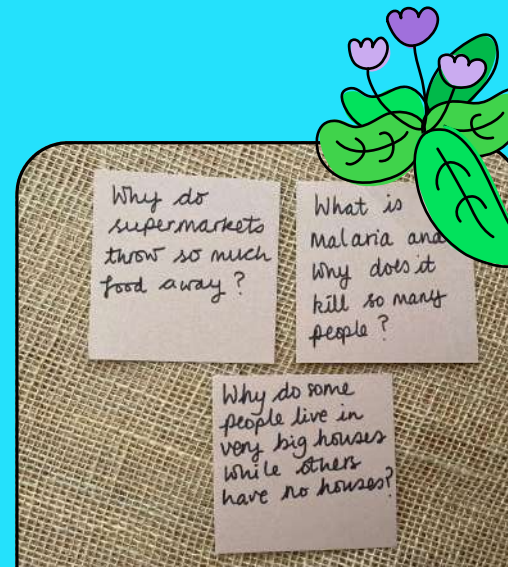 Why do
supermarkets
throw so much
food away?
What is
malaria and
why does it
kill so many
people?
Why do some
people live in
very big houses
while others
have no houses?